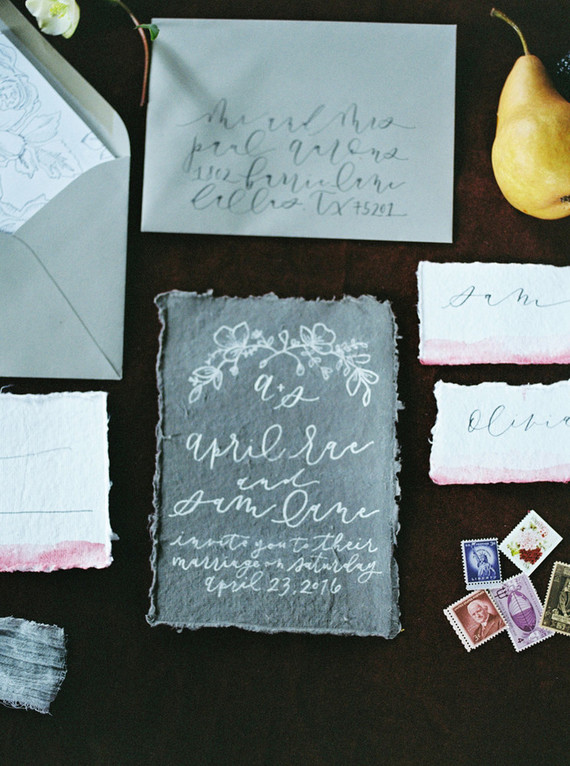 mr and mrs
paul aarons
1802 barrie lane
dallas, TX 75201
a + s
april rae
and
sam lane
invite you to their
marriage on saturday
april 23, 2016
sam
olivia
LIBERTY